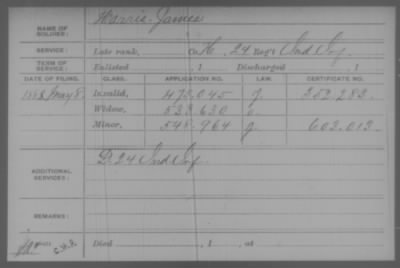 NAME OF SOLDIER: Harris James
SERVICE: Late rank, Co. H, 24 Reg't Ind Inf.
TERM OF SERVICE: Enlisted , 1 Discharged , 1
DATE OF FILING. CLASS. APPLICATION NO. LAW. CERTIFICATE NO.
May 8. Invalid, 473.045 g. 252.283.
Widow, 533.630
Minor, 548.964 g. 603.013.
ADDITIONAL SERVICES: D. 24 Ind Inf.
REMARKS:
Died , 1 , at